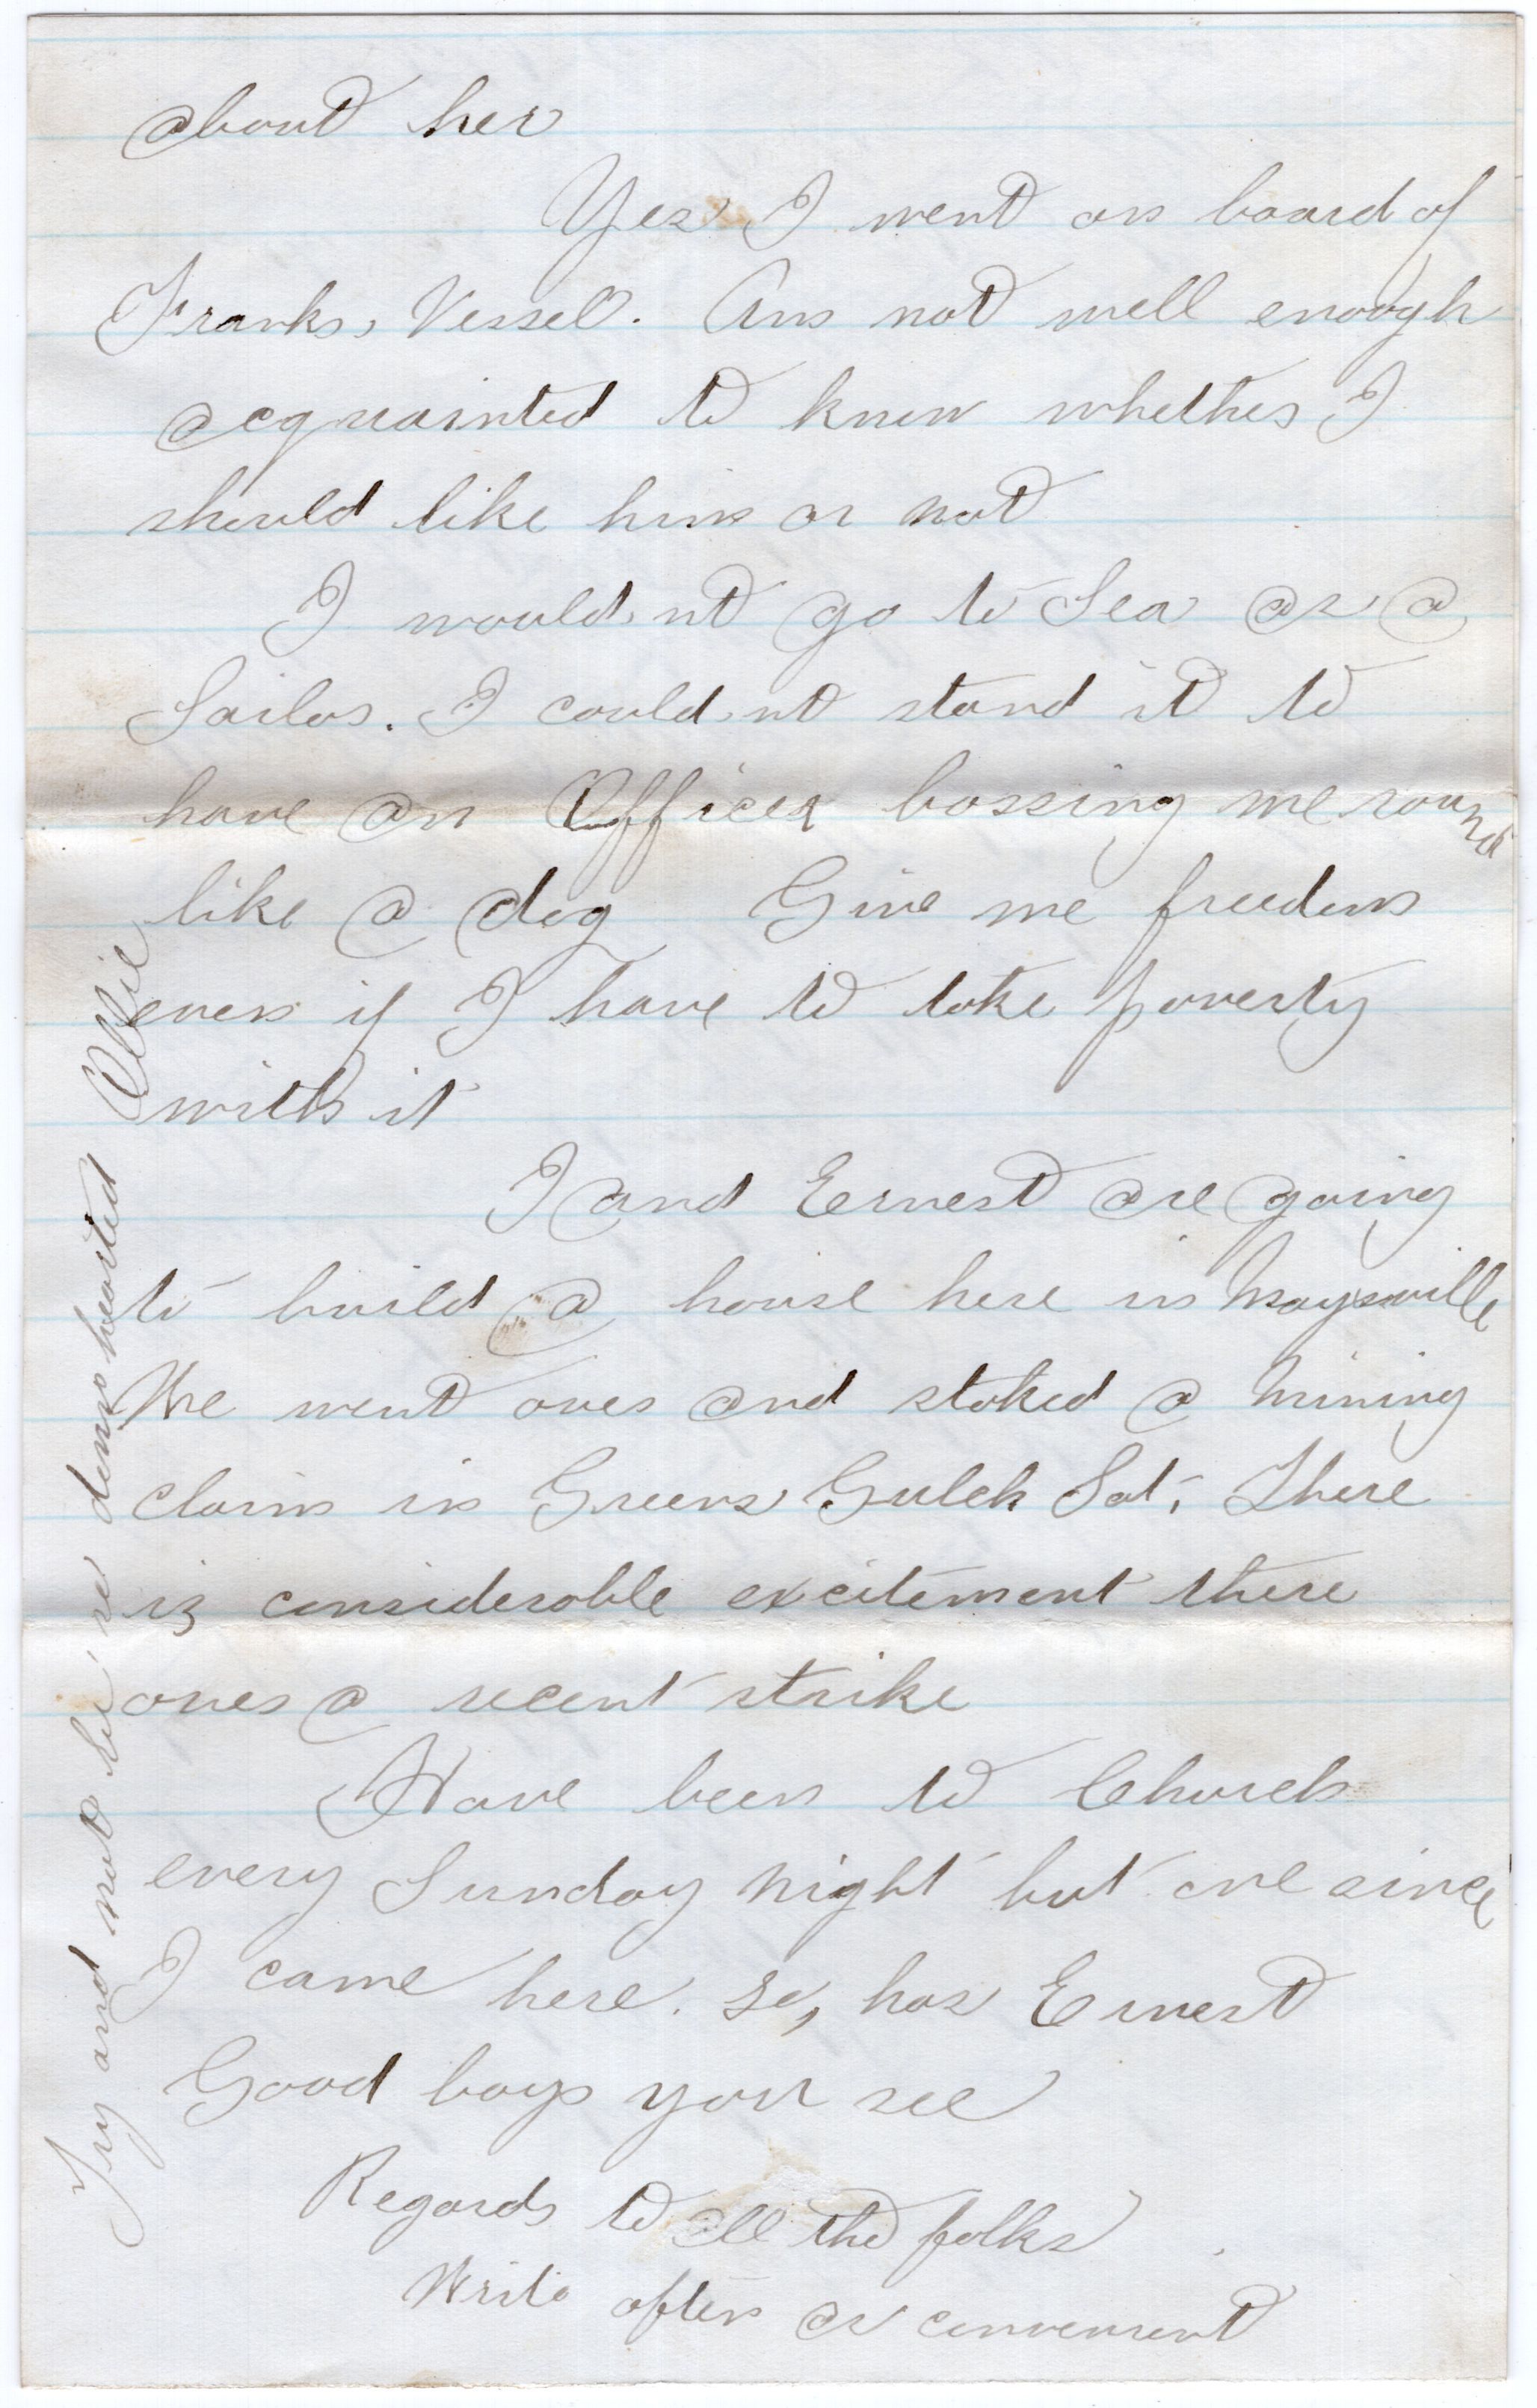 about her
Yes I went on board of
Franks, Vessel. Am not well enough
acquainted to know whether I
should like him or not
I would,nt go to Sea as a
Sailor. I could,nt stand it to
have an Officer bossing me round
like a dog Give me freedom
even if I have to take poverty
with it
I and Ernest are going
to build a house here in Maysville
We went over and staked a Mining
claim in Greens Gulch Sat, There
is considerable excitement there
over a recent strike
Have been to Church
every Sunday Night but one since
I came here. So, has Ernest
Good boys you see
Regards to all the folks
Write often as convenient
Try and not be so down hearted Ollie